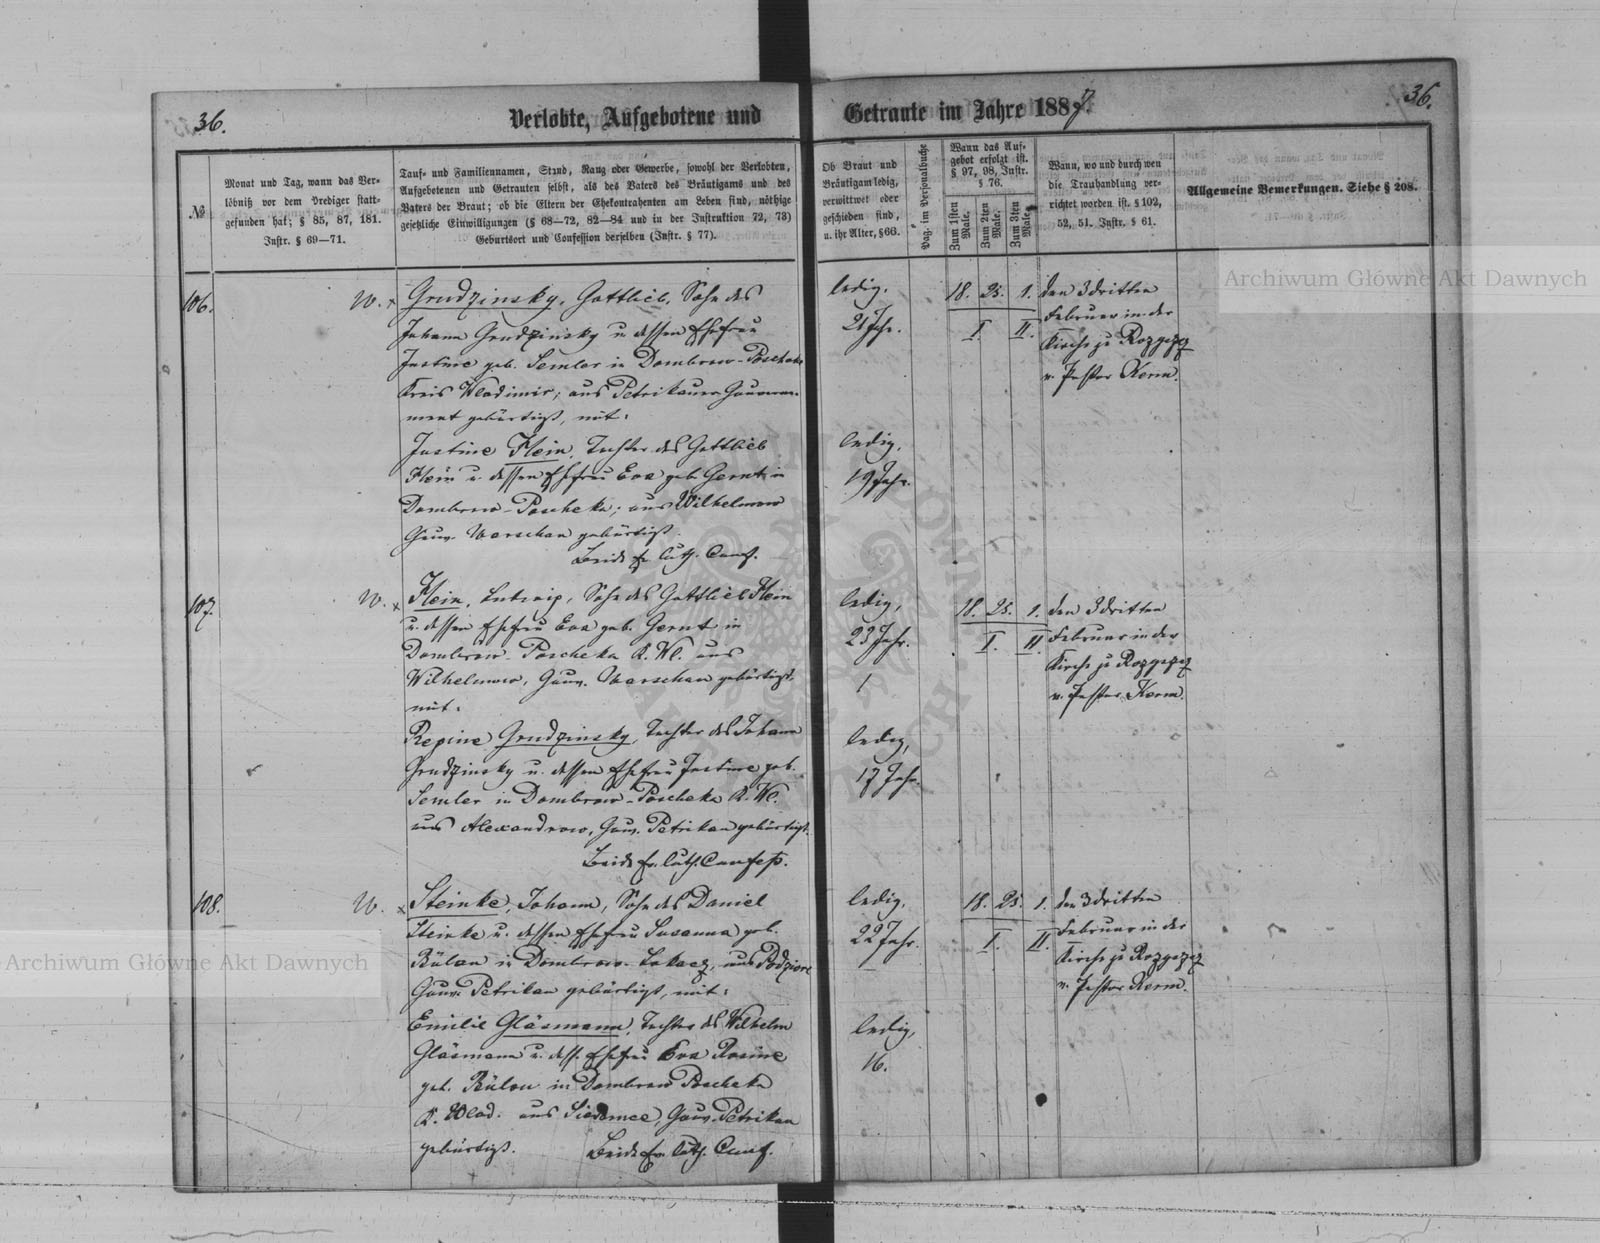 36.
Verlobte, Aufgebotene und
Getraute im Jahre 1887.
36.
№
Monat und Tag, wann das Ver-
löbniß vor dem Prediger statt-
gefunden hat; § 85, 87, 181.
Instr. § 69—71.
Tauf- und Familiennamen, Stand, Rang oder Gewerbe, sowohl der Verlobten,
Aufgebotenen und Getrauten selbst, als des Vaters des Bräutigams und des
Vaters der Braut; ob die Eltern der Ehekontrahenten am Leben sind, nöthige
gesetzliche Einwilligungen (§ 68—72, 82—84 und in der Instruktion 72, 73)
Geburtsort und Confession derselben (Instr. § 77).
Ob Braut und
Bräutigam ledig,
verwittwet oder
geschieden sind,
u. ihr Alter, § 66.
Pag. im Personalbuche
Wann das Auf-
gebot erfolgt ist.
§ 97, 98, Instr.
§ 76.
Zum 1sten Male.
Zum 2ten Male.
Zum 3ten Male.
Wann, wo und durch wen
die Trauhandlung ver-
richtet worden ist. § 102,
52, 51. Instr. § 61.
Allgemeine Bemerkungen. Siehe § 208.
106.
W. x
Grudzinsky, Gottlieb, Sohn des
Johann Grudzinsky u. dessen Ehefrau
Justine geb. Semler in Dombrow-Poscheka
Kreis Wladimir; aus Petrikauer Gouverne-
ment gebürtigt, mit:
Justine Klein, Tochter des Gottlieb
Klein u. dessen Ehefrau Eva geb. Gernt in
Dombrow-Poscheka; aus Wilhelmow
Gouv. Warschau gebürtigt.
Beide ev. luth. Conf.
ledig.
21 Jahr.
ledig,
19 Jahr.
18. 25. 1.
I. II.
den 3 dritten
Februar in der
Kirche zu Rozyszcz
v. Pastor Kerm.
107.
W. x
Klein, Ludwig, Sohn des Gottlieb Klein
u. dessen Ehefrau Eva geb. Gernt in
Dombrow-Poscheka K. Wl. aus
Wilhelmow, Gouv. Warschau gebürtigt.
mit:
Regine Grudzinsky, Tochter des Johann
Grudzinsky u. dessen Ehefrau Justine geb.
Semler in Dombrow-Poscheka K. Wl.
aus Alexandrow, Gouv. Petrikau gebürtigt.
Beide ev. luth. Confess.
ledig,
23 Jahr.
ledig,
17 Jahr.
18. 25. 1.
I. II.
den 3 dritten
Februar in der
Kirche zu Rozyszcz
v. Pastor Kerm.
108.
W. x
Steinke, Johann, Sohn des Daniel
Steinke u. dessen Ehefrau Susanna geb.
Bülow in Dombrow-Lokacz, aus
Gouv. Petrikau gebürtigt, mit:
Emilie Gläsmann, Tochter des Wilhelm
Gläsmann u. dess. Ehefrau Eva Rosine
geb. Bülow in Dombrow Poscheka
K. Wlad. aus Gouv. Petrikau
gebürtigt. Beide ev. luth. Conf.
ledig,
22 Jahr.
ledig,
16.
18. 25. 1.
I. II.
den 3 dritten
Februar in der
Kirche zu Rozyszcz
v. Pastor Kerm.
Archiwum Główne Akt Dawnych
Archiwum Główne Akt Dawnych